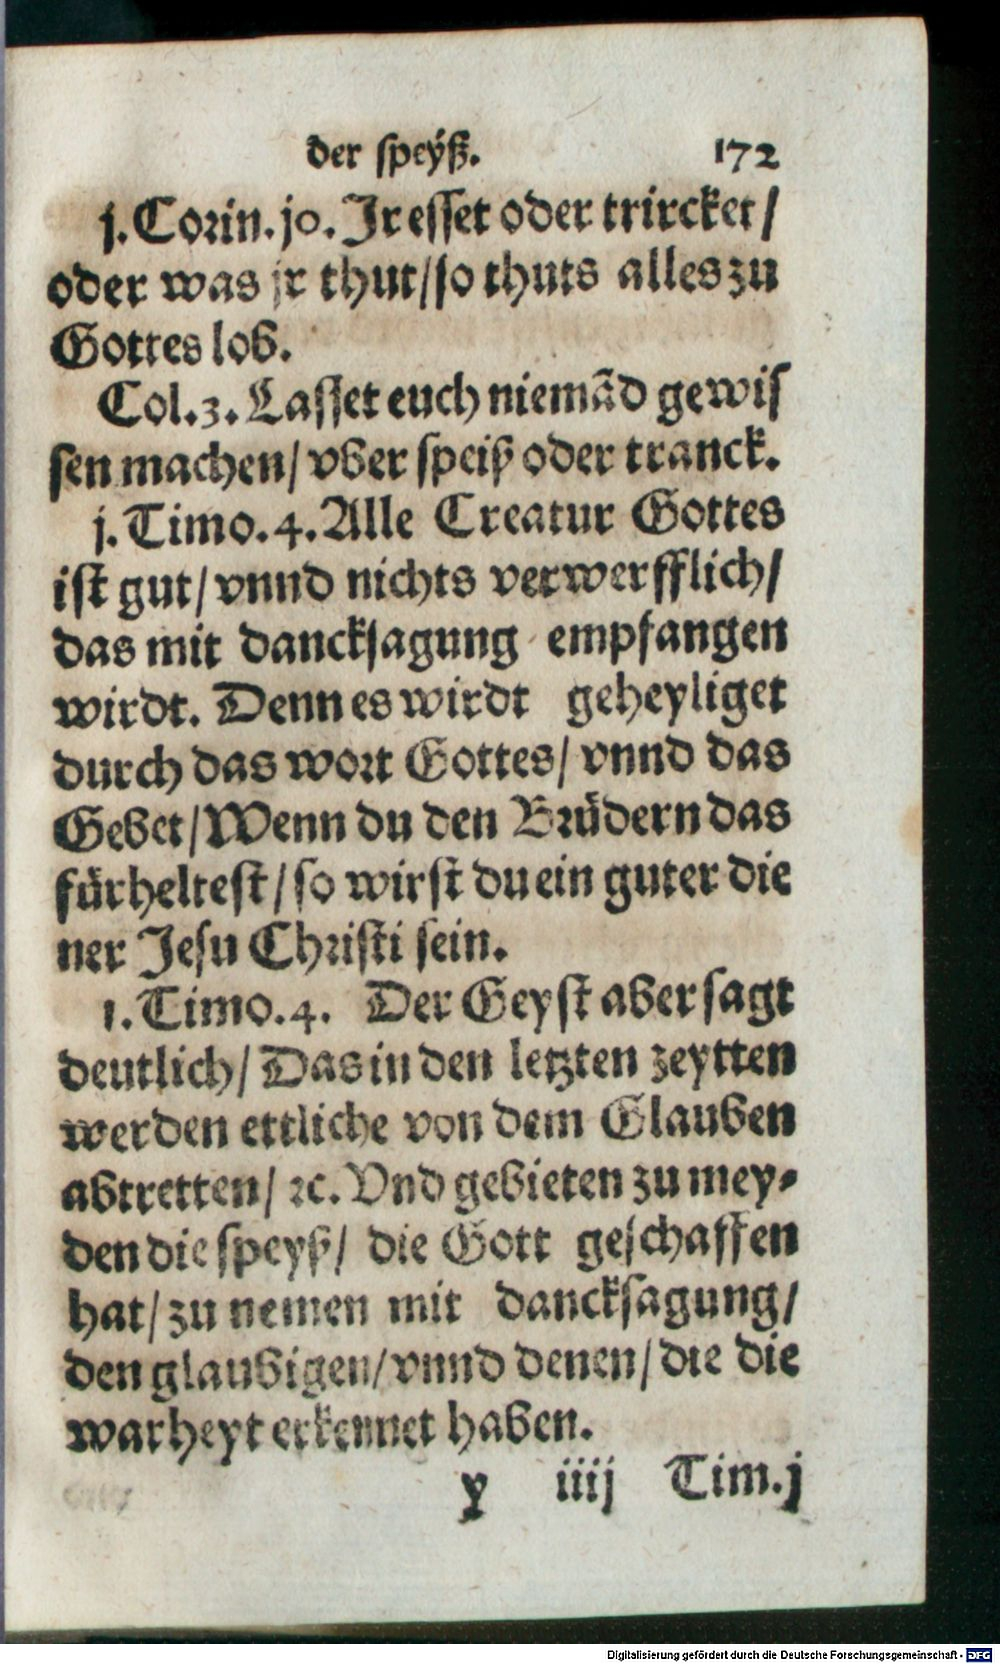 der speÿß. 172
j. Corin. jo. Jr esset oder trircket /
oder was jr thut / so thuts alles zu
Gottes lob.
Col. 3. Lasset euch niemãd gewis
sen machen / vber speiß oder tranck.
j. Timo. 4. Alle Creatur Gottes
ist gut / vnnd nichts verwerfflich /
das mit dancksagung empfangen
wirdt. Denn es wirdt geheyliget
durch das wort Gottes / vnnd das
Gebet / Wenn du den Brüdern das
fürheltest / so wirst du ein guter die
ner Jesu Christi sein.
1. Timo. 4. Der Geyst aber sagt
deutlich / Das in den letzten zeytten
werden ettliche von dem Glauben
abtretten / ꝛc. Vnd gebieten zu mey⸗
den die speyß / die Gott geschaffen
hat / zu nemen mit dancksagung /
den glaubigen / vnnd denen / die die
warheyt erkennet haben.
y iiij Tim. j
Digitalisierung gefördert durch die Deutsche Forschungsgemeinschaft - DFG